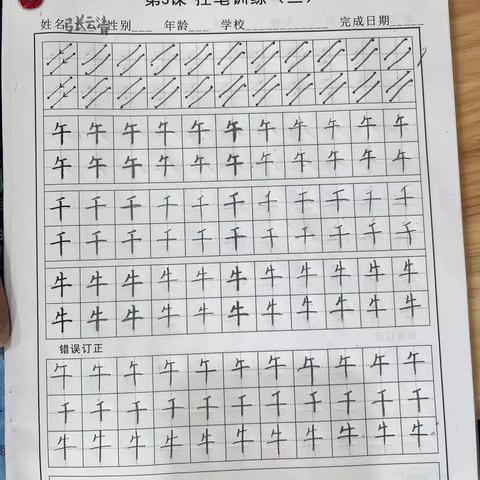 第3课 控笔训练（二）
姓名弓长云清性别 年龄 学校 完成日期
午午午午午午午午午午午
午午午午午午午午午午午
千千千千千千千千千千千
千千千千千千千千千千千
牛牛牛牛牛牛牛牛牛牛牛
牛牛牛牛牛牛牛牛牛牛牛
错误订正
午午午午午午午午午午午
千千千千千千千千千千千
牛牛牛牛牛牛牛牛牛牛牛